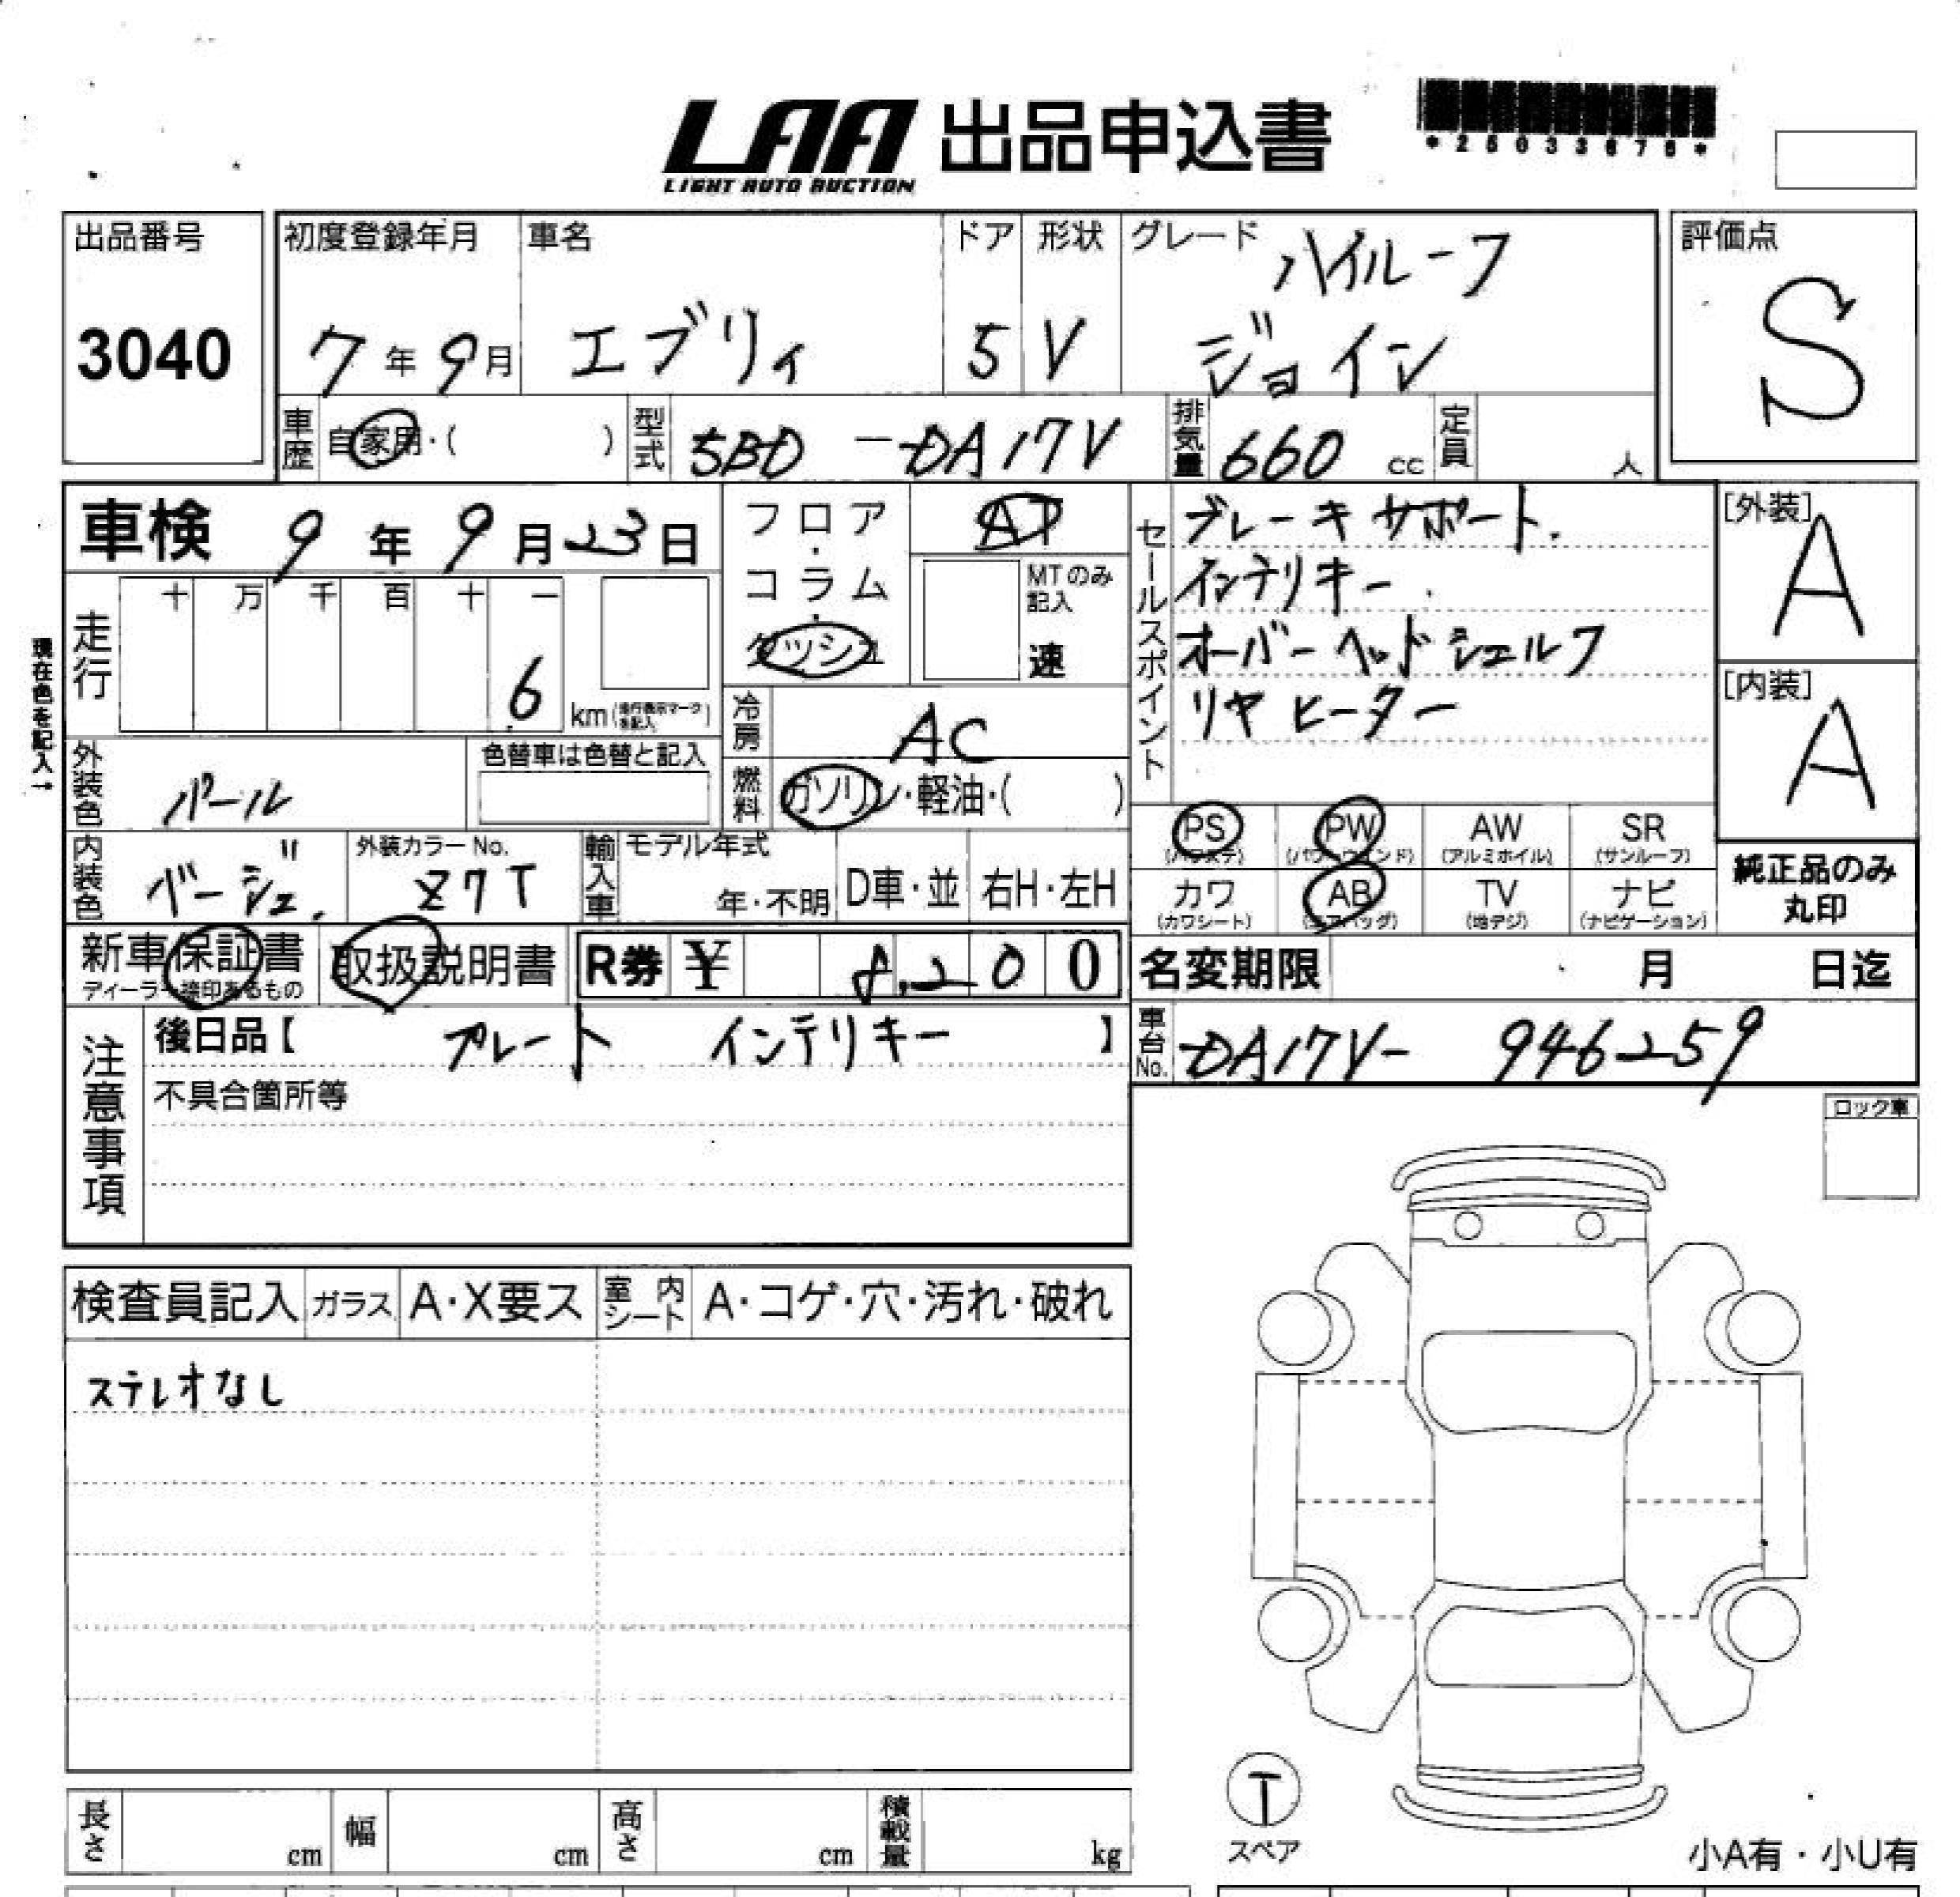 LAA 出品申込書
LIGHT AUTO AUCTION
*25033678*
出品番号
3040
初度登録年月
7年9月
車名
エブリィ
ドア
5
形状
V
グレード
ハイルーフ
ジョイン
評価点
S
車歴 自家用・( )
型式 5BD-DA17V
排気量 660 cc
定員 人
車検 9年9月23日
走行 十 万 千 百 十 一
6 km
現在色を記入→
フロア・コラム・ダッシュ
AT
MTのみ記入
速
冷房 AC
燃料 ガソリン・軽油・( )
セールスポイント
ブレーキサポート.
インテリキー
オーバーヘッドシェルフ
リヤヒーター
[外装]
A
[内装]
A
外装色 パール
色替車は色替と記入
内装色 ベージュ.
外装カラーNo.
Z7T
輸入車 モデル年式
年・不明
D車・並
右H・左H
PS (パワステ)
PW (パワーウインド)
AW (アルミホイル)
SR (サンルーフ)
カワ (カワシート)
AB (エアバッグ)
TV (地デジ)
ナビ (ナビゲーション)
純正品のみ
丸印
新車保証書
ディーラー捺印あるもの
取扱説明書
R券 ¥ 8,200
名変期限 月 日迄
注意事項
後日品【 プレート インテリキー 】
不具合箇所等
車台No. DA17V- 946259
ロック車
検査員記入
ガラス A・X要ス
室内シート A・コゲ・穴・汚れ・破れ
ステレオなし
長さ cm
幅 cm
高さ cm
積載量 kg
T
スペア
小A有・小U有